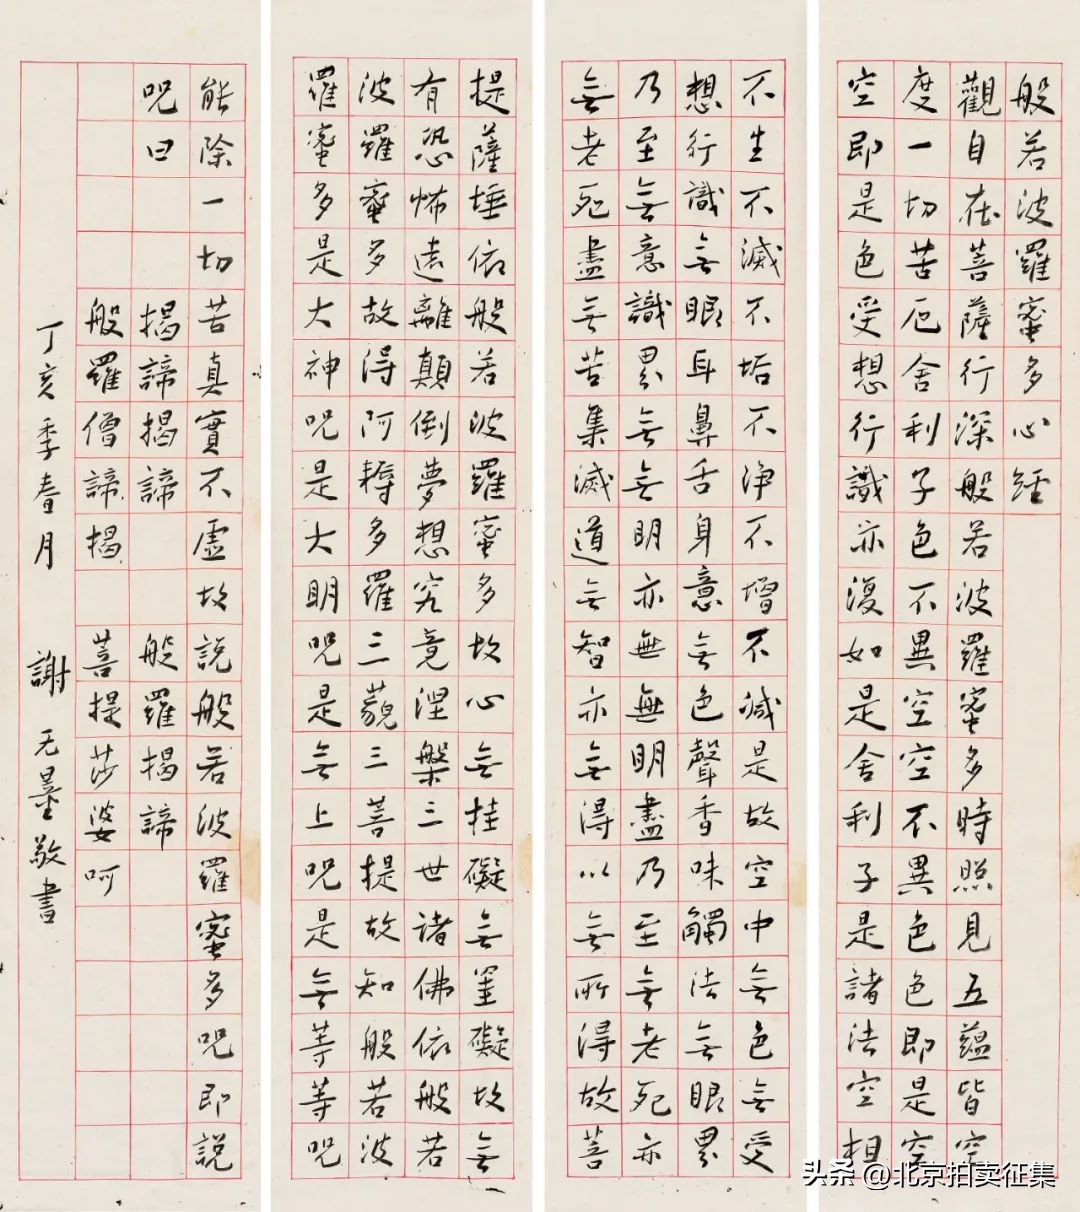 般若波羅蜜多心經
觀自在菩薩行深般若波羅蜜多時照見五蘊皆空
度一切苦厄舍利子色不異空空不異色色即是空
空即是色受想行識亦復如是舍利子是諸法空相
不生不滅不垢不淨不增不減是故空中無色無受
想行識無眼耳鼻舌身意無色聲香味觸法無眼界
乃至無意識界無無明亦無無明盡乃至無老死亦
無老死盡無苦集滅道無智亦無得以無所得故菩
提薩埵依般若波羅蜜多故心無挂礙無罣礙故無
有恐怖遠離顛倒夢想究竟涅槃三世諸佛依般若
波羅蜜多故得阿耨多羅三藐三菩提故知般若波
羅蜜多是大神呪是大明呪是無上呪是無等等呪
能除一切苦真實不虛故說般若波羅蜜多呪即說
呪曰 揭諦揭諦 般羅揭諦
般羅僧諦揭 菩提莎婆呵
丁亥季春月 謝无量敬書
头条 @北京拍卖征集